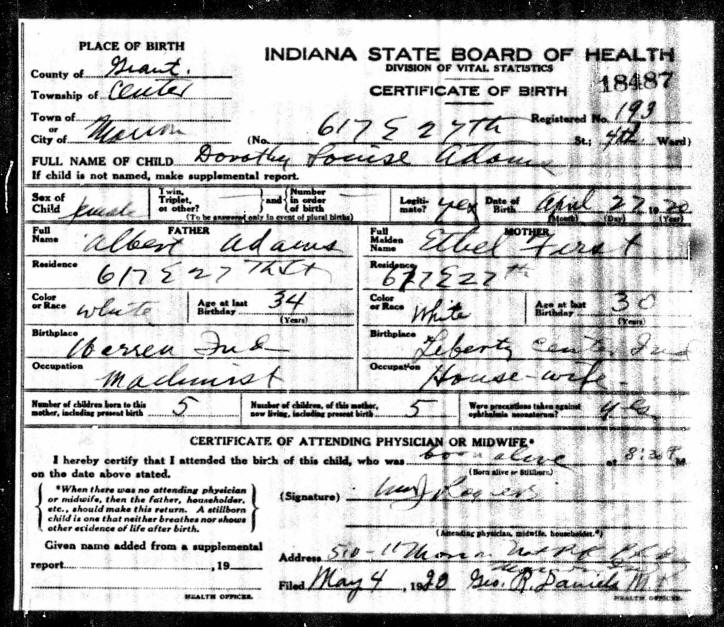 PLACE OF BIRTH
INDIANA STATE BOARD OF HEALTH
DIVISION OF VITAL STATISTICS
County of Grant.
18487
Township of Center
CERTIFICATE OF BIRTH
Town of
Registered No. 193
or
City of Marion (No. 617 E 27th St.; 4th Ward)
FULL NAME OF CHILD Dorothy Louise Adams
If child is not named, make supplemental report.
Sex of Child female Twin, Triplet, or other? and Number in order of birth Legiti- mate? yes Date of Birth April 27 1920
(To be answered only in event of plural births) (Month) (Day) (Year)
FATHER MOTHER
Full Name Albert Adams Full Maiden Name Ethel First
Residence 617 E 27 Th St Residence 617 E 27th
Color or Race white Age at last Birthday 34 (Years) Color or Race White Age at last Birthday 30 (Years)
Birthplace Warren Ind Birthplace Liberty Cent. Ind
Occupation Machinist Occupation House-wife
Number of children born to this mother, including present birth 5 Number of children, of this mother, now living, including present birth 5 Were precautions taken against ophthalmia neonatorum? yes
CERTIFICATE OF ATTENDING PHYSICIAN OR MIDWIFE*
I hereby certify that I attended the birth of this child, who was born alive at 8:30 P. M
on the date above stated. (Born alive or Stillborn)
*When there was no attending physician
or midwife, then the father, householder,
etc., should make this return. A stillborn
child is one that neither breathes nor shows
other evidence of life after birth.
(Signature)
(Attending physician, midwife, householder.*)
Given name added from a supplemental
report , 19
Address 510-11 Marion
Filed May 4, 1920 Geo. R. Daniels M.D.
HEALTH OFFICER. HEALTH OFFICER.